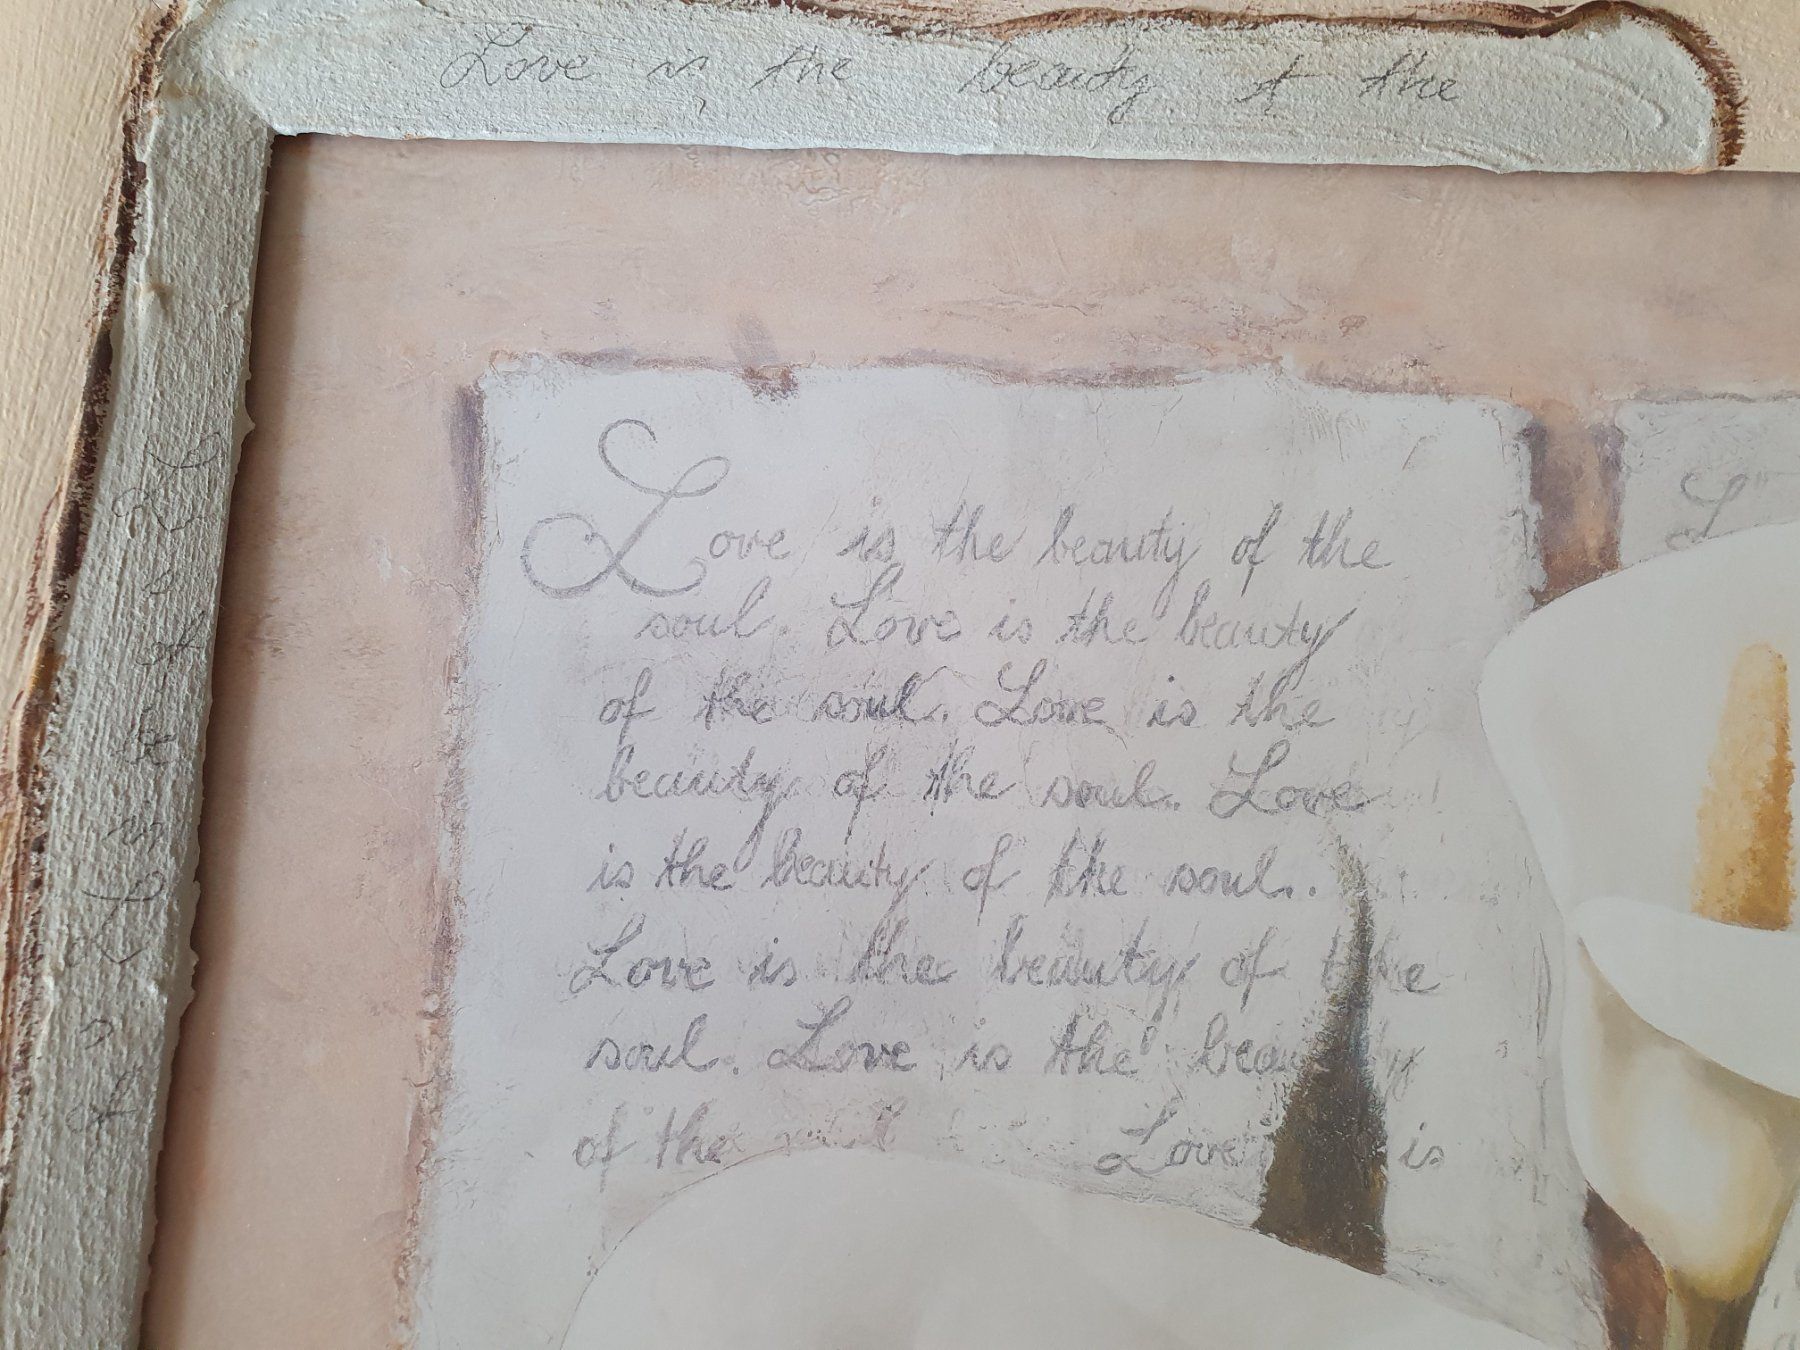 Love is the beauty of the
Love is the beauty of the
soul. Love is the beauty
of the soul. Love is the
beauty of the soul. Love
is the beauty of the soul.
Love is the beauty of the
soul. Love is the beauty
of the soul Love is
L